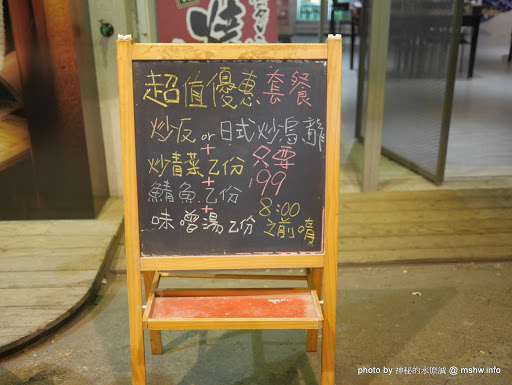 超值優惠套餐
炒反 or 日式炒烏龍
+
炒青菜乙份 只要
+ 199
鯖魚乙份 8:00
+
味噌湯乙份 之前唷
photo by 神秘的水原誠 @ mshw.info